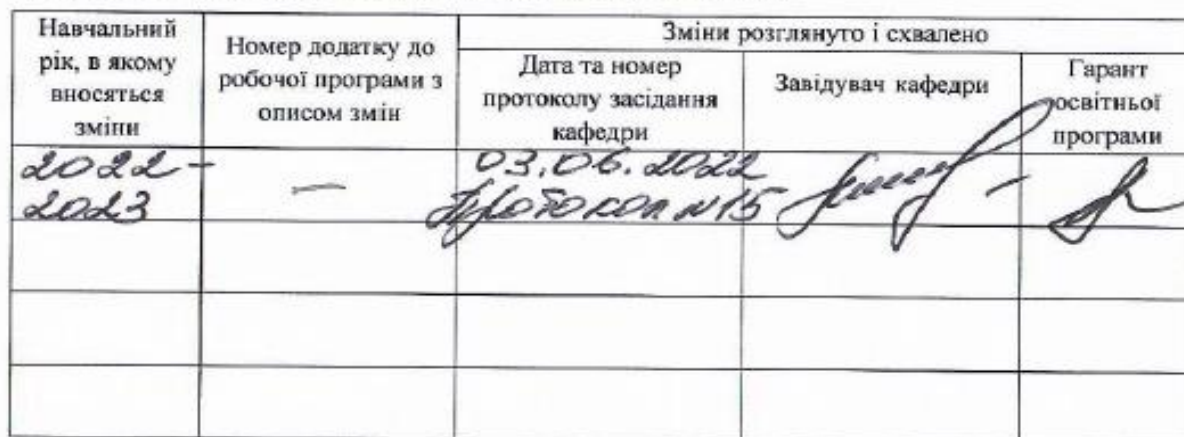 Навчальний рік, в якому вносяться зміни
Номер додатку до робочої програми з описом змін
Зміни розглянуто і схвалено
Дата та номер протоколу засідання кафедри
Завідувач кафедри
Гарант освітньої програми
2022-
2023
—
03.06.2022
Протокол №15